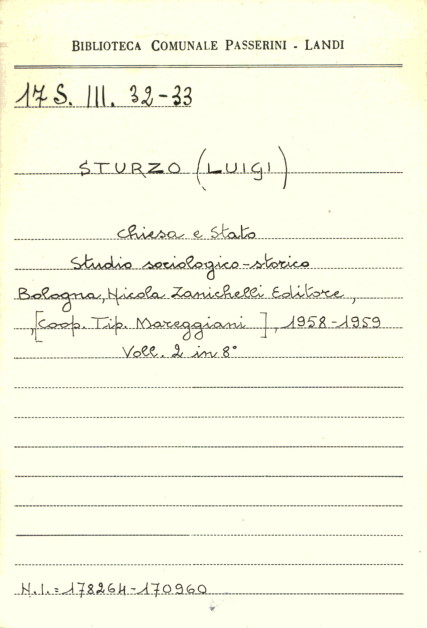 BIBLIOTECA COMUNALE PASSERINI - LANDI
17 S. III. 32-33
STURZO (LUIGI)
Chiesa e Stato
Studio sociologico-storico
Bologna, Nicola Zanichelli Editore,
,[Coop. Tip. Mareggiani ], 1958-1959
Voll. 2 in 8°
N.I.= 178264-170960